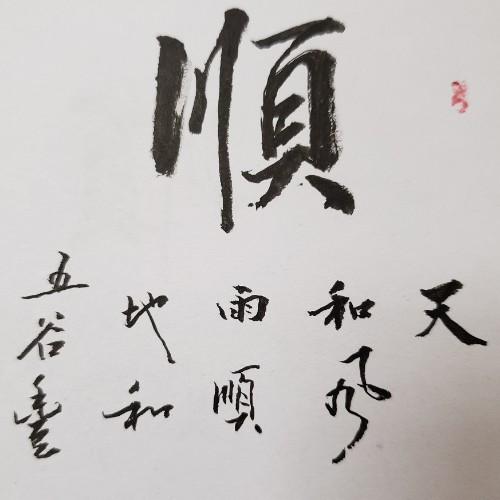 順
天
和風
雨順
地和
五谷豐